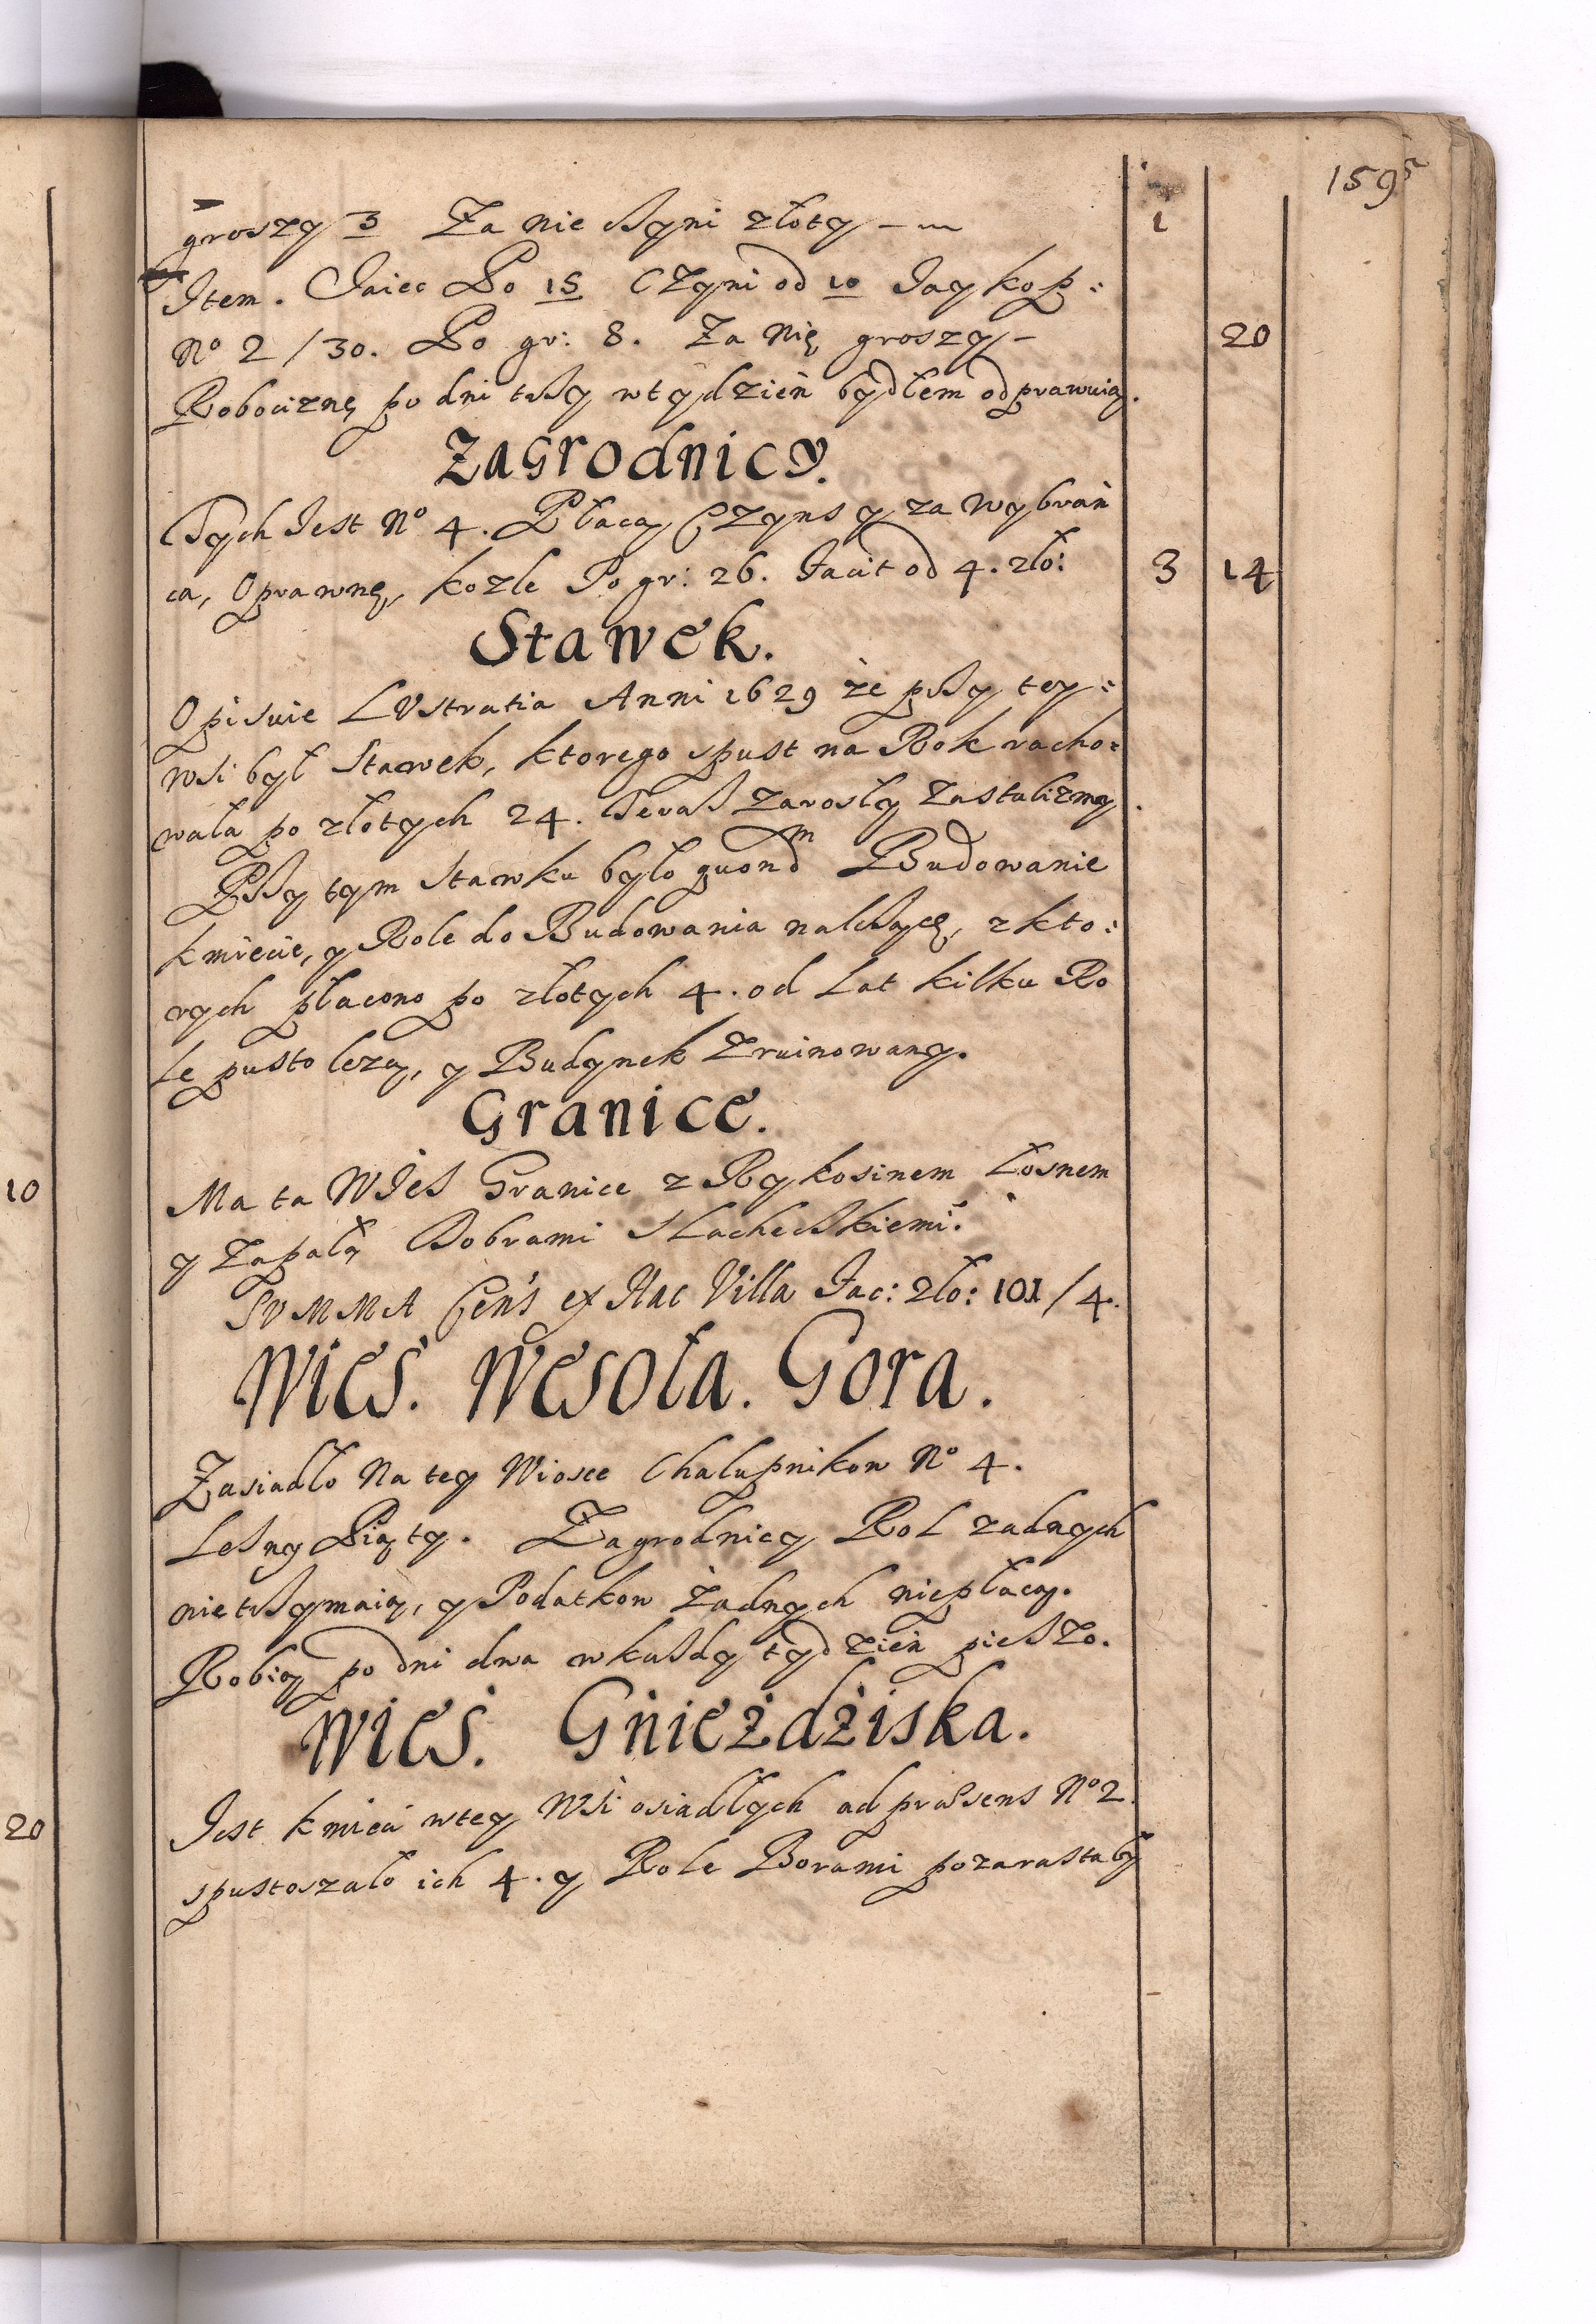 159
groszy 3 Za nie Czyni złoty — 1
Item. Jaiec Po 15 Czyni od 10 Jay kop:
No 2/30. Po gr: 8. Za Nię groszy — 20
Robociznę po dni trzy w tydzień bydłem odprawuią.
Zagrodnicy.
Tych Jest No 4. Płacą Czynsz y za Wybrań
ca, Oprawnę, kozle Po gr: 26. Facit od 4. zło: 3 14
Stawek.
Opisuie LUstratia Anni 1629 że przy tey:
Wsi był Stawek, ktorego spust na Rok racho:
wała po złotych 24. Teraz zarosły Zastalizmy.
Przy tym Stawku było quondm Budowanie
kmiecie, y Role do Budowania należące, z kto:
rych płacono po złotych 4. od Lat kilku Ro
le pusto lezą, y Budynek Zruinowany.
Granice.
Ma ta WIeś Granice z Rykosinem Łosnem
y Zapałą Dobrami Slacheckiemi.
SUMMA Cens ex Hac Villa Fac: zło: 101/4.
Wieś. Wesoła. Gora.
Zasiadło Na tey Wiosce Chalupnikow No 4.
Leśny Piąty. Zagrodnicy Rol zadnych
nie trzymaią, y Podatkow żadnych niepłacą.
Robią po dni dwa w kazdy tydzień pieszo.
Wieś. Gnieżdżiska.
Jest kmieci w tey Wsi osiadłych ad præsens No 2.
spustoszało ich 4. y Role Borami pozarastały
10
20